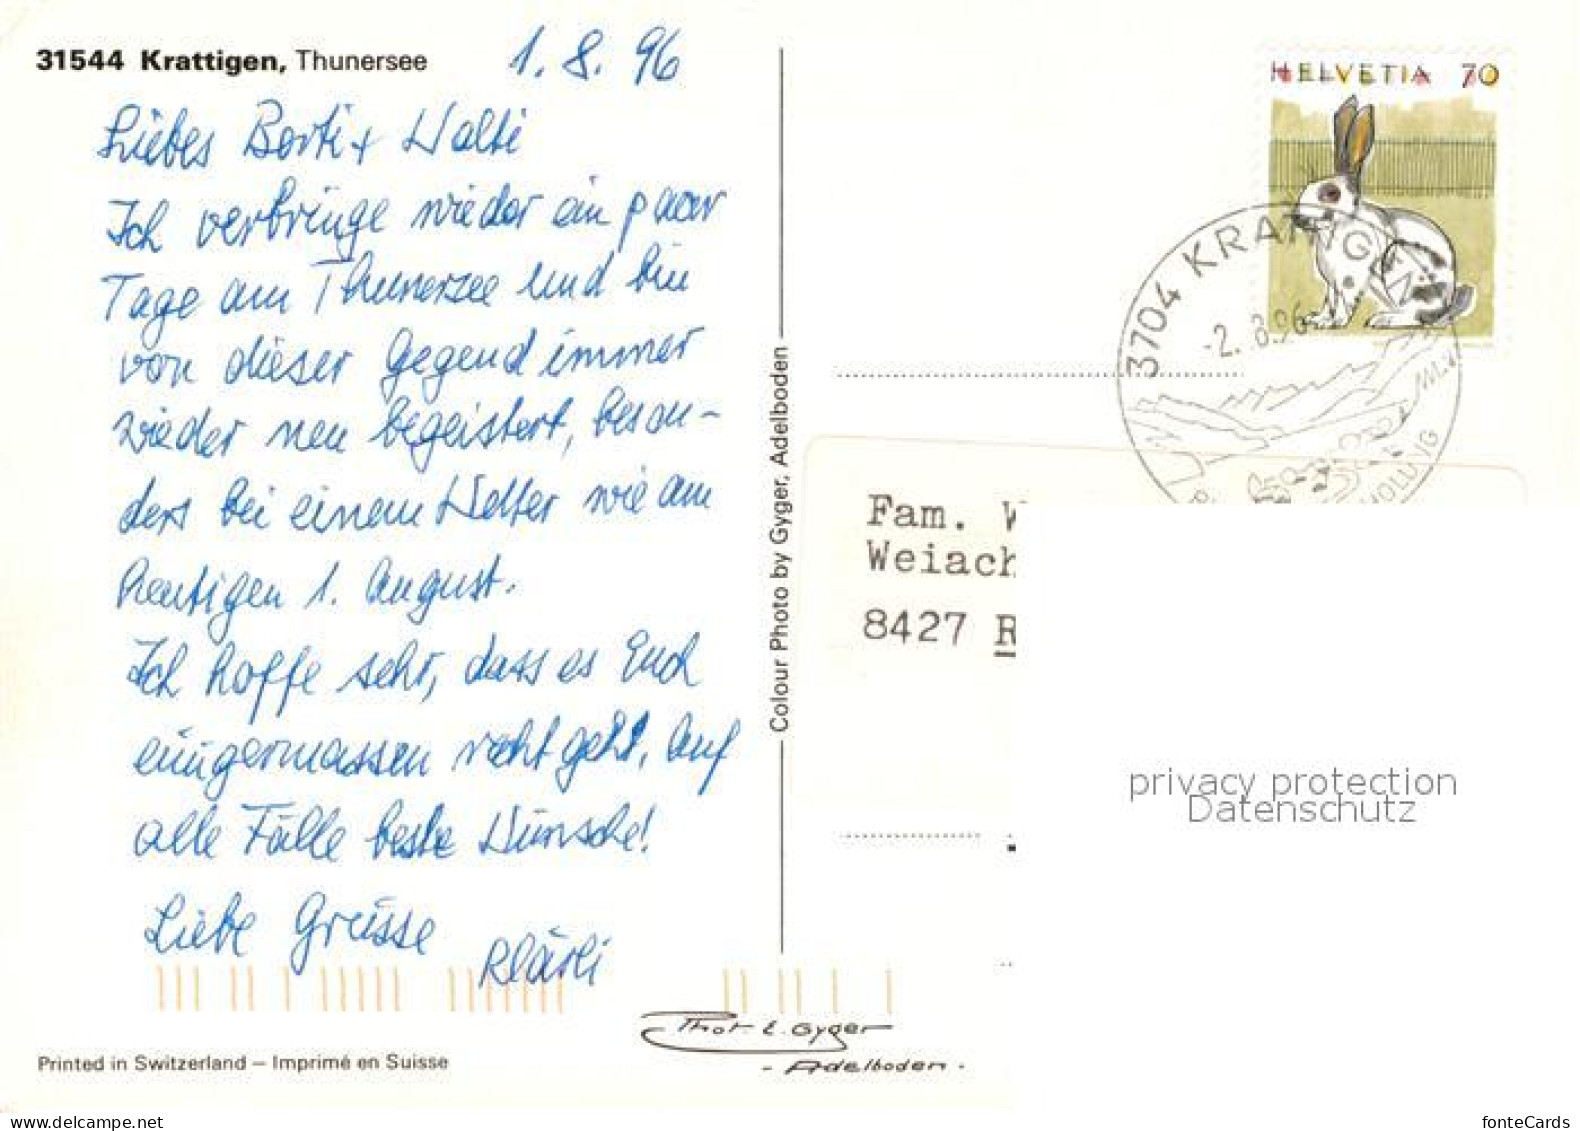 31544 Krattigen, Thunersee
1. 8. 96
Liebes Berti + Walti
Ich verbringe wieder ein paar
Tage am Thunersee und bin
von dieser Gegend immer
wieder neu begeistert, beson-
ders bei einem Wetter wie am
heutigen 1. August.
Ich hoffe sehr, dass es Euch
einigermassen recht geht. Auf
alle Fälle beste Wünsche!
Liebe Grüsse
Klärli
Printed in Switzerland – Imprimé en Suisse
Colour Photo by Gyger, Adelboden
Phot. E. Gyger
- Adelboden -
HELVETIA 70
3704 KRATTIGEN
-2. 8.96
Fam. W
Weiach
8427 R
privacy protection
Datenschutz
www.delcampe.net
fonteCards